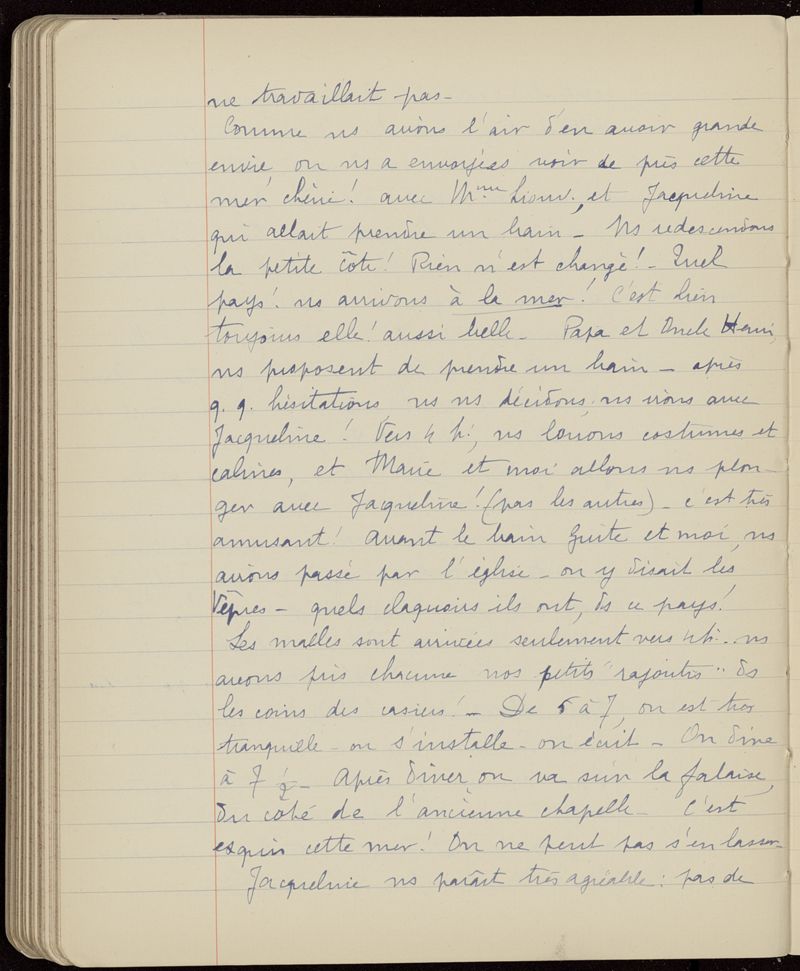 ne travaillait pas -
Comme ns avions l'air d'en avoir grande
envie on ns a envoyées voir de près cette
mer chérie! avec Mme Liouv. et Jacqueline
qui allait prendre un bain - Ns redescendons
la petite côte! Rien n'est changé! - Quel
pays! ns arrivons à la mer! C'est bien
toujours elle! aussi belle - Papa et Oncle Henri
ns proposent de prendre un bain - après
q. q. hésitations ns ns décidons; ns irons avec
Jacqueline! Vers 4 h; ns louons costumes et
cabines, et Marie et moi allons ns plon-
ger avec Jacqueline! (pas les autres) - c'est très
amusant! Avant le bain Guite et moi, ns
avions passé par l'église - on y disait les
Vêpres - quels claquoirs ils ont, ds ce pays!
Les malles sont arrivées seulement vers 4h... ns
avons pris chacune nos petits "rajoutis" ds
les coins des casiers! - De 5 à 7, on est très
tranquille - on s'installe - on écrit - On dîne
à 7 1/2 - Après dîner on va sur la falaise,
du côté de l'ancienne chapelle - C'est
exquis cette mer! On ne peut pas s'en lasser -
Jacqueline ns paraît très agréable: pas de